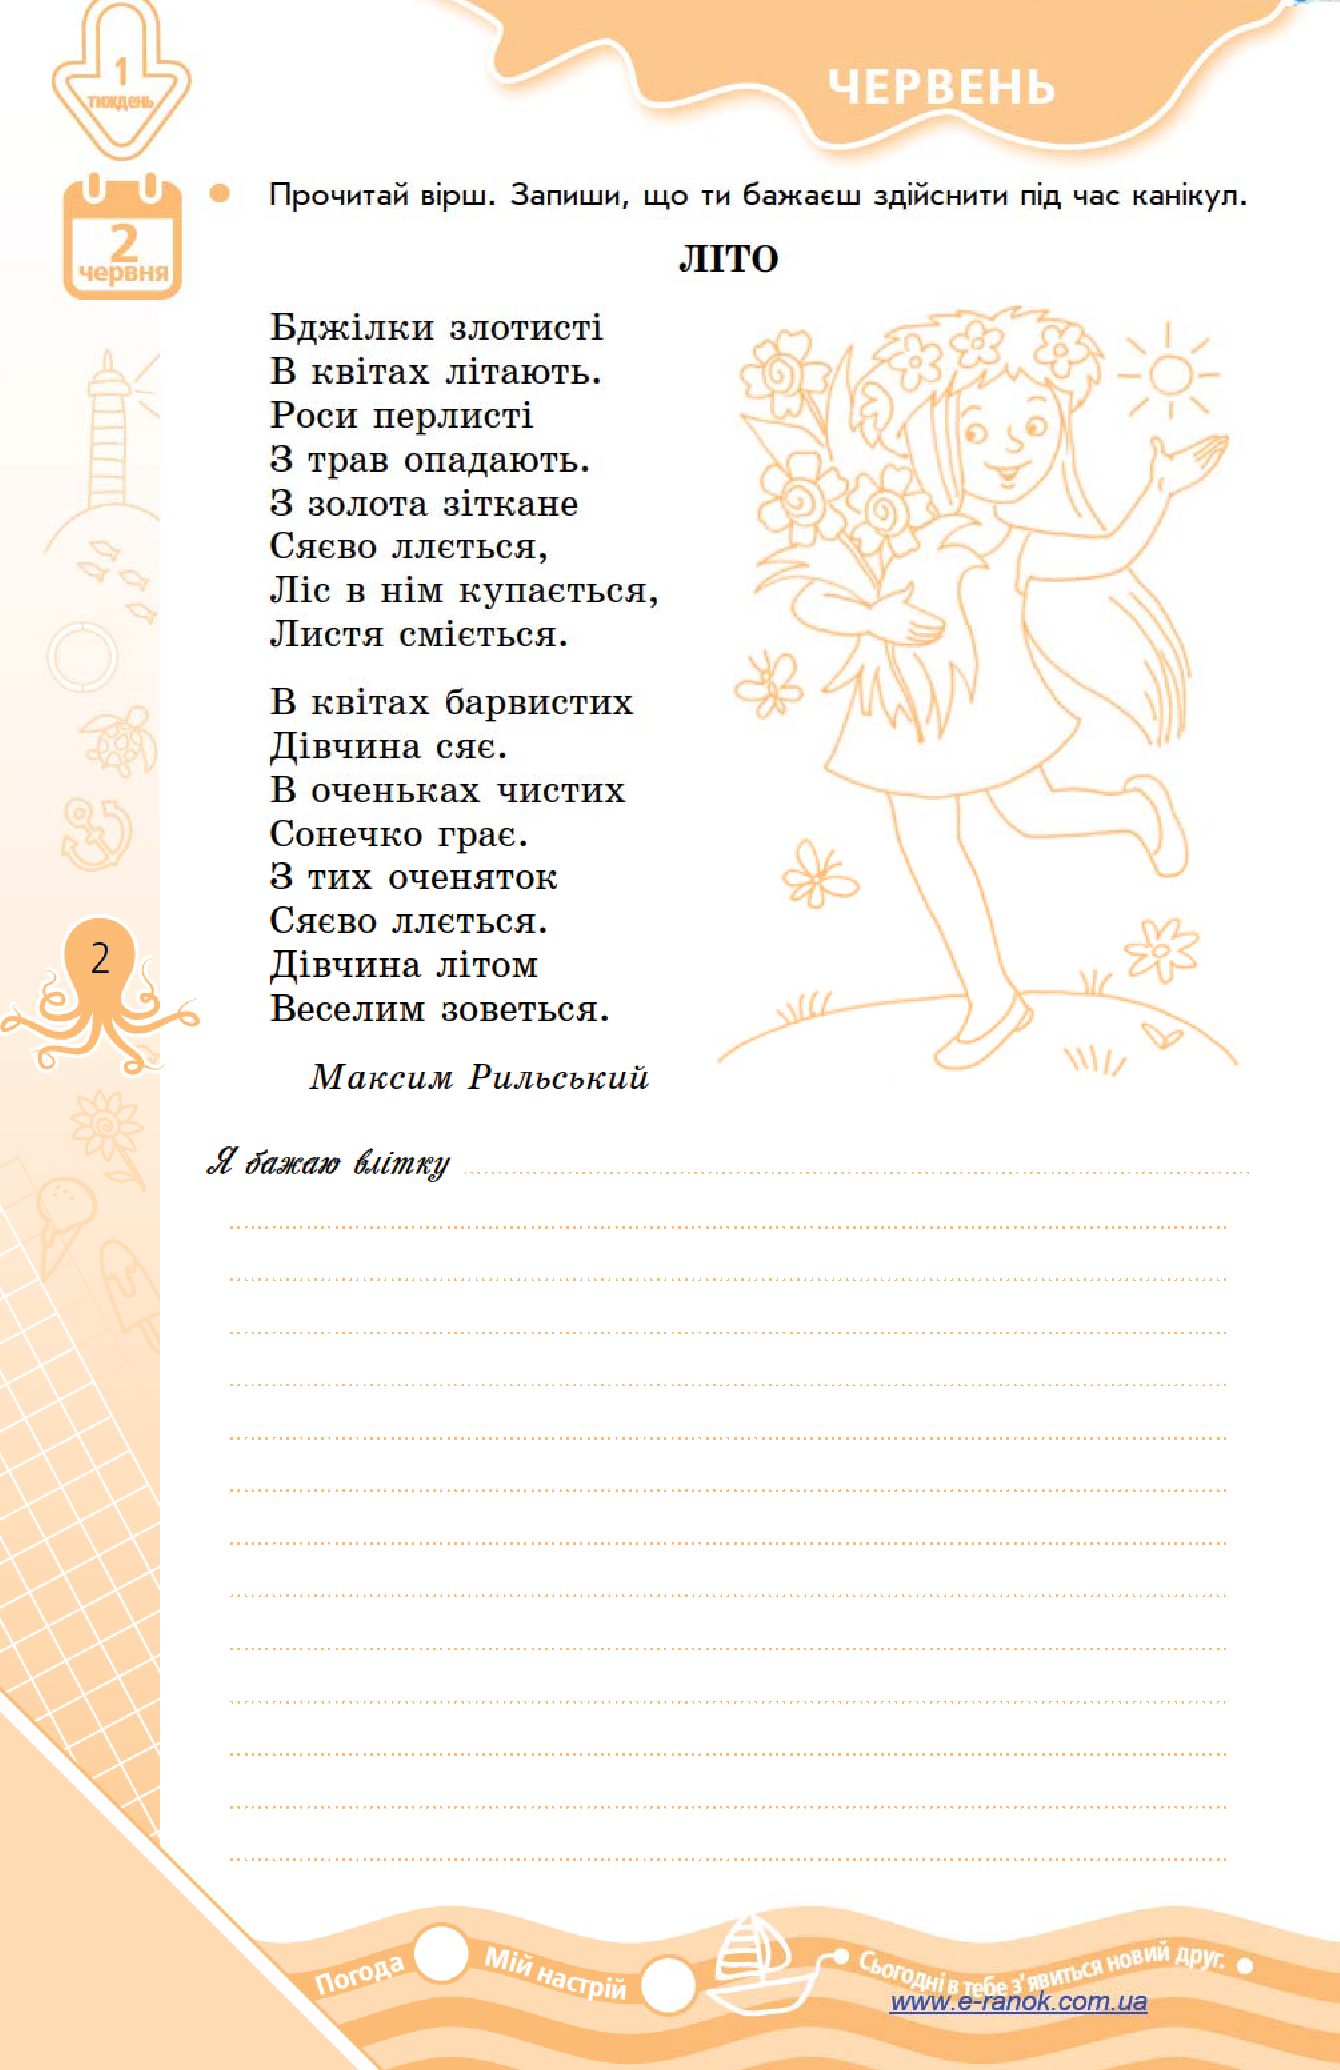 1
тиждень
ЧЕРВЕНЬ
2
червня
Прочитай вірш. Запиши, що ти бажаєш здійснити під час канікул.
ЛІТО
Бджілки злотисті
В квітах літають.
Роси перлисті
З трав опадають.
З золота зіткане
Сяєво ллється,
Ліс в нім купається,
Листя сміється.
В квітах барвистих
Дівчина сяє.
В оченьках чистих
Сонечко грає.
З тих оченяток
Сяєво ллється.
Дівчина літом
Веселим зоветься.
Максим Рильський
2
Я бажаю влітку
Погода
Мій настрій
Сьогодні в тебе з'явиться новий друг.
www.e-ranok.com.ua